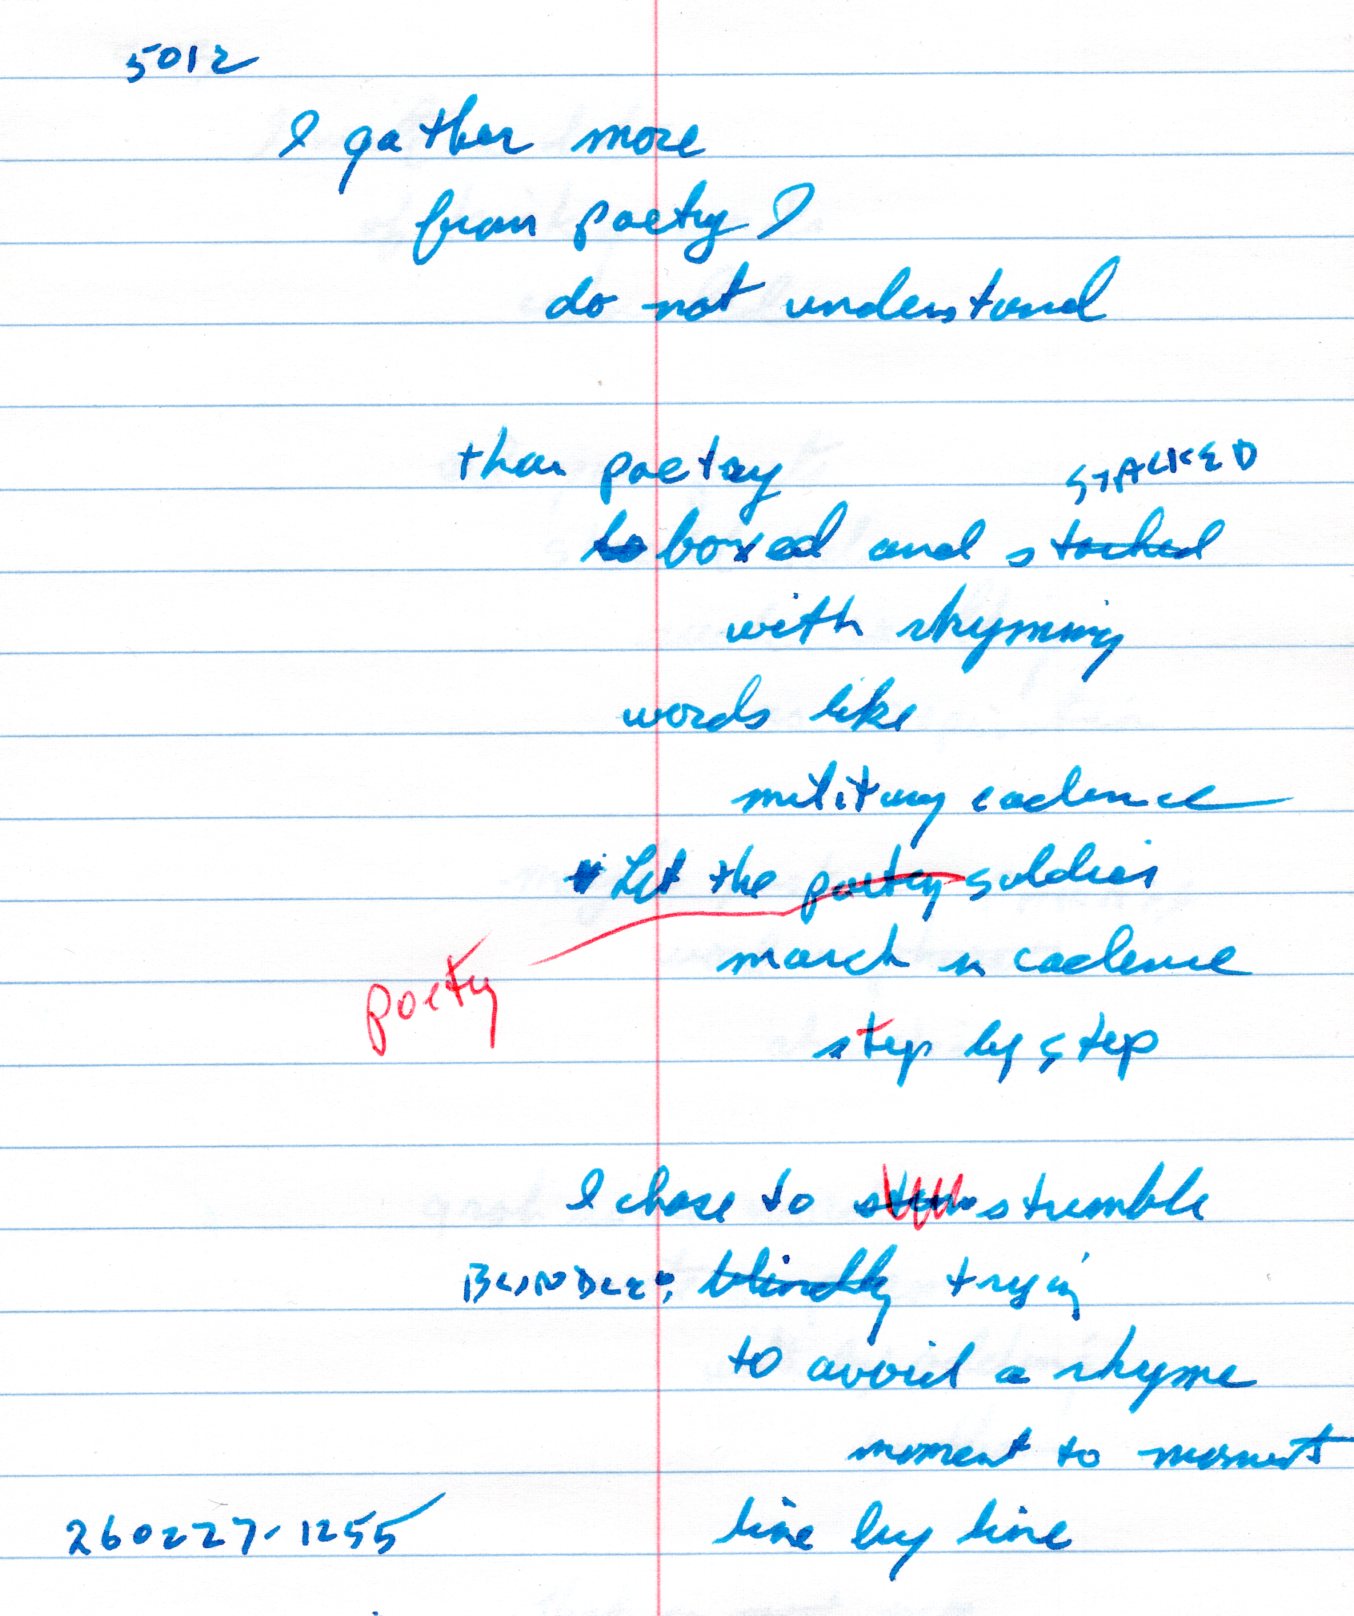 5012
I gather more
from poetry I
do not understand
than poetry
STACKED
to boxed and stacked
with rhyming
words like
military cadence
Let the poetry soldiers
march in cadence
poetry
step by step
I chose to stumble
BLINDLY: blindly trying
to avoid a rhyme
moment to moment
260227-1255 line by line